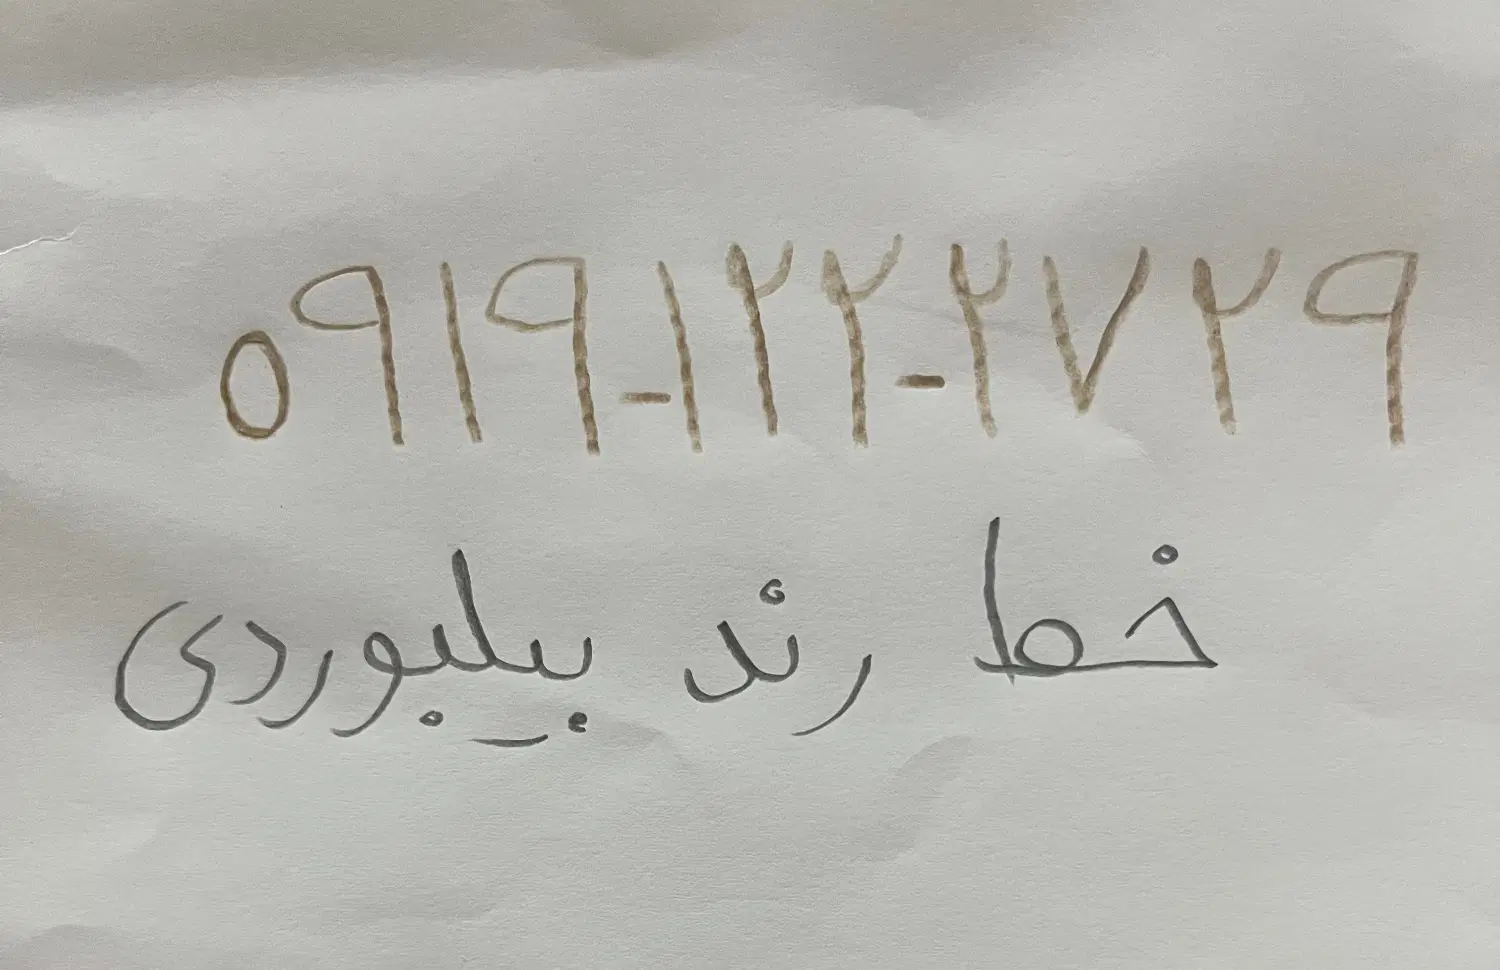 ۰۹۱۹-۱۲۲-۲۷۲۹
خط رند بیلبوردی